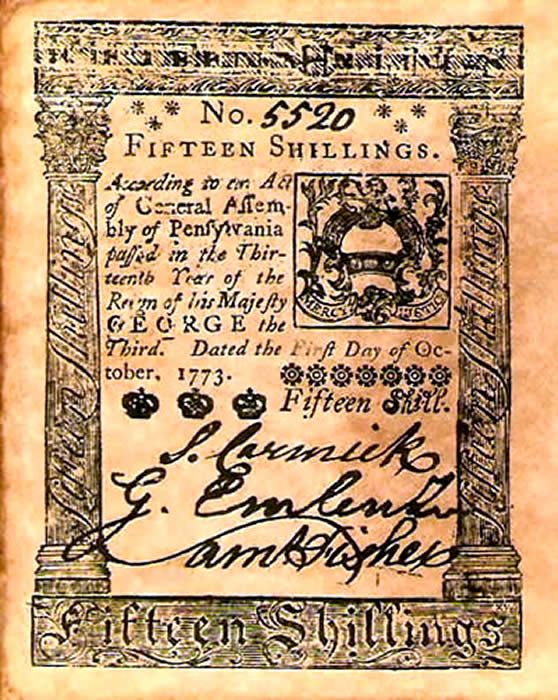 No. 5520
FIFTEEN SHILLINGS.
According to an Act
of General Assem-
bly of Pensylvania
passed in the Thir-
teenth Year of the
Reign of his Majesty
GEORGE the
Third. Dated the First Day of Oc-
tober, 1773.
MERCY JUSTICE
Fifteen Shill.
S. Carmick
G. Emlen
Sam Fisher
Fifteen Shillings
Fifteen Shillings